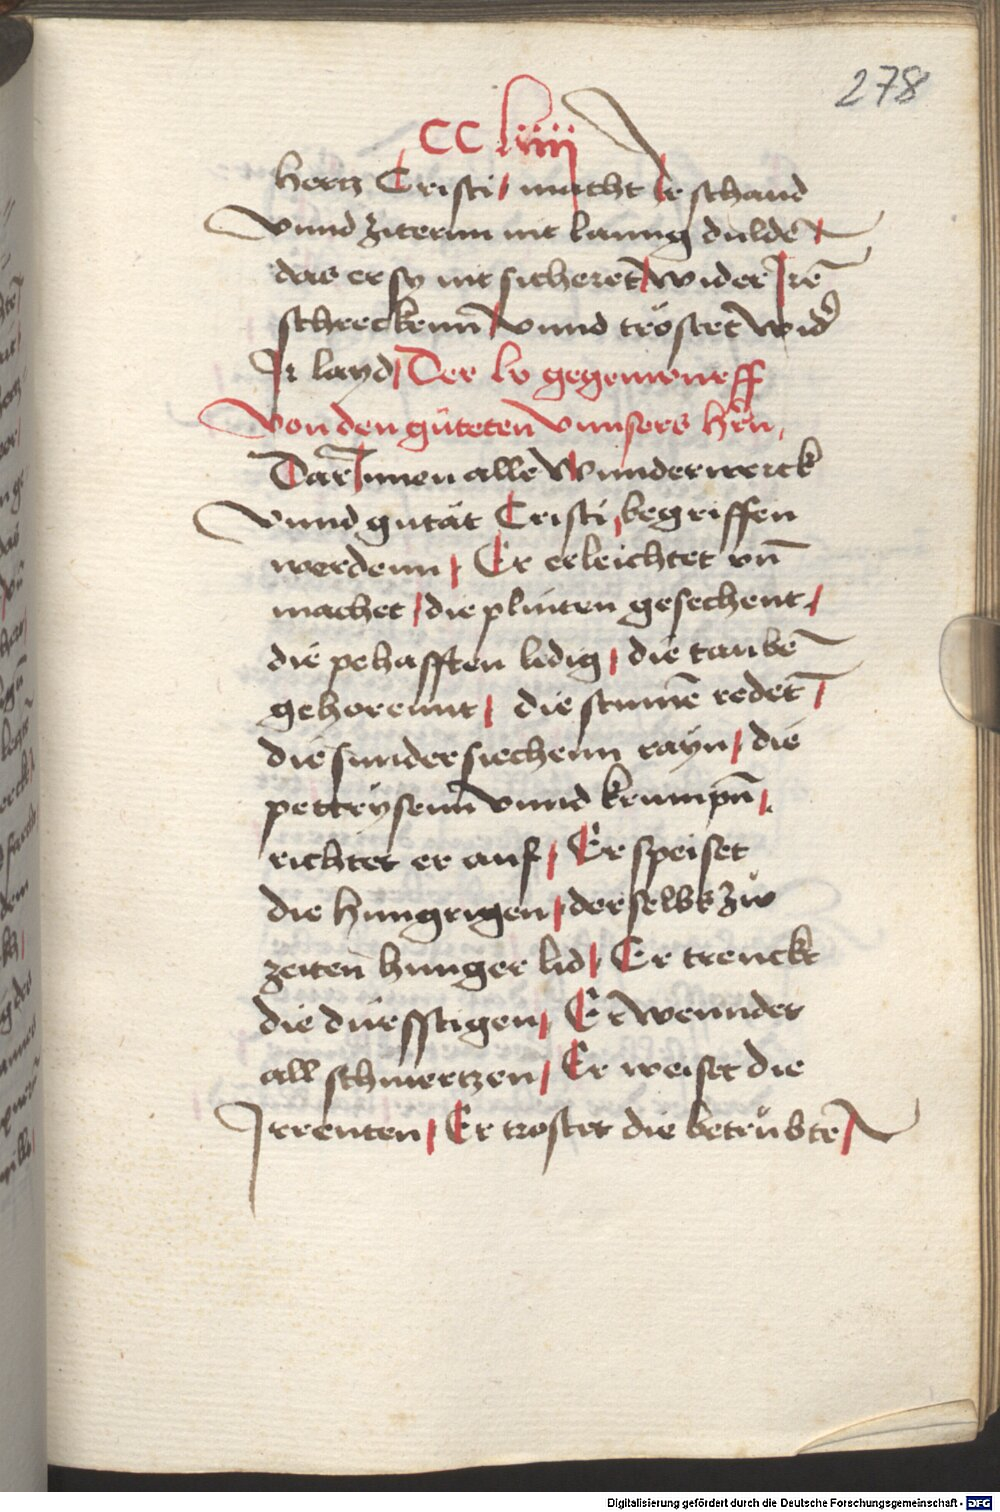 278
CC liiii
hertz Cristi / macht Ir schand
vnnd ziternn nit lanng duldē /
das er sy nit sicheret / wider Irē
schreckenn̄ / vnnd tröstet wid̾
Ir layd / Der lv gegenwurff
Von den güteten vnnsers hr̄n,
Dar Innen alle Wunderwerck
vnnd gutät Cristi / begriffen
werdenn / Er erleichtet vn̄
machet / die plinten gesechent /
die pehafften ledig / die taubē
gehorennt / die stumē redet /
die sundersiechenn rayn / die
pettrysenn̄ vnnd krumpn̄ /
richtet er auf / Er speiset
die hungrigen / der selbs zuͦ
zeiten hunger lid / Er trenckt
die dürfftigen / Er wenndet
all schmertzen / Er weiset die
Irrenten / Er trostet die betrübtē /
Digitalisierung gefördert durch die Deutsche Forschungsgemeinschaft - DFG